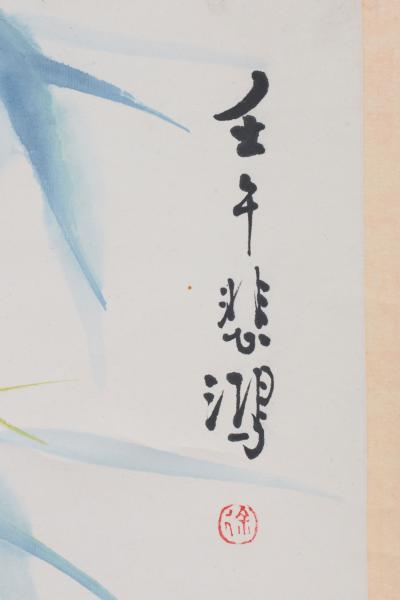 壬午悲鴻
徐